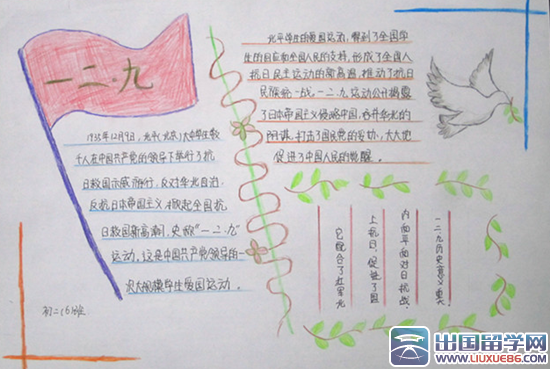 一二·九
1935年12月9日，北平(北京)大中学生数
千人在中国共产党的领导下举行了抗
日救国示威游行，反对华北自治，
反抗日本帝国主义，掀起全国抗
日救国新高潮，史称“一二·九”
运动，这是中国共产党领导的一
次大规模学生爱国运动。
初二(6)班
北平学生的爱国运动，得到了全国学
生的响应和全国人民的支持，形成了全国人
抗日民主运动的新高潮，推动了抗日
民族统一战，一二·九运动公开揭露
了日本帝国主义侵略中国，吞并华北的
阴谋，打击了国民党的妥协，大大地
促进了中国人民的觉醒。
一二九历史意义重大
内和平和对日抗战，
上抗日，促进了国
它配合了红军北
出国留学网
www.liuxue86.com